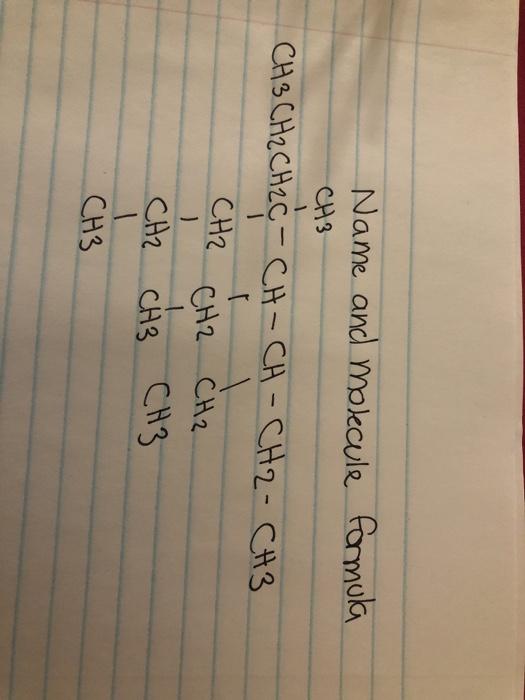 Name and molecule formula
CH3
CH3CH2CH2C - CH - CH - CH2 - CH3
CH2 CH2 CH2
CH2 CH3 CH3
CH3